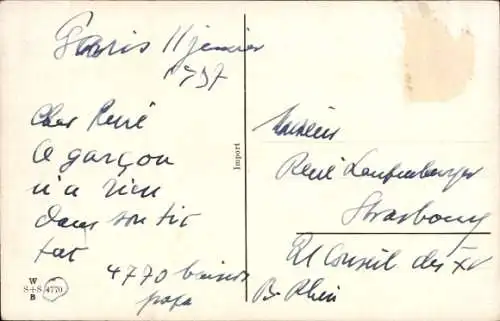 Paris 11 janvier
1937
Cher René
Ce garçon
n'a rien
dans son tic
tac
4770 baisers
papa
W
S+S 4770
B
Import
Monsieur
René Laufenburger
Strasbourg
Conseil des XV
B. Rhin